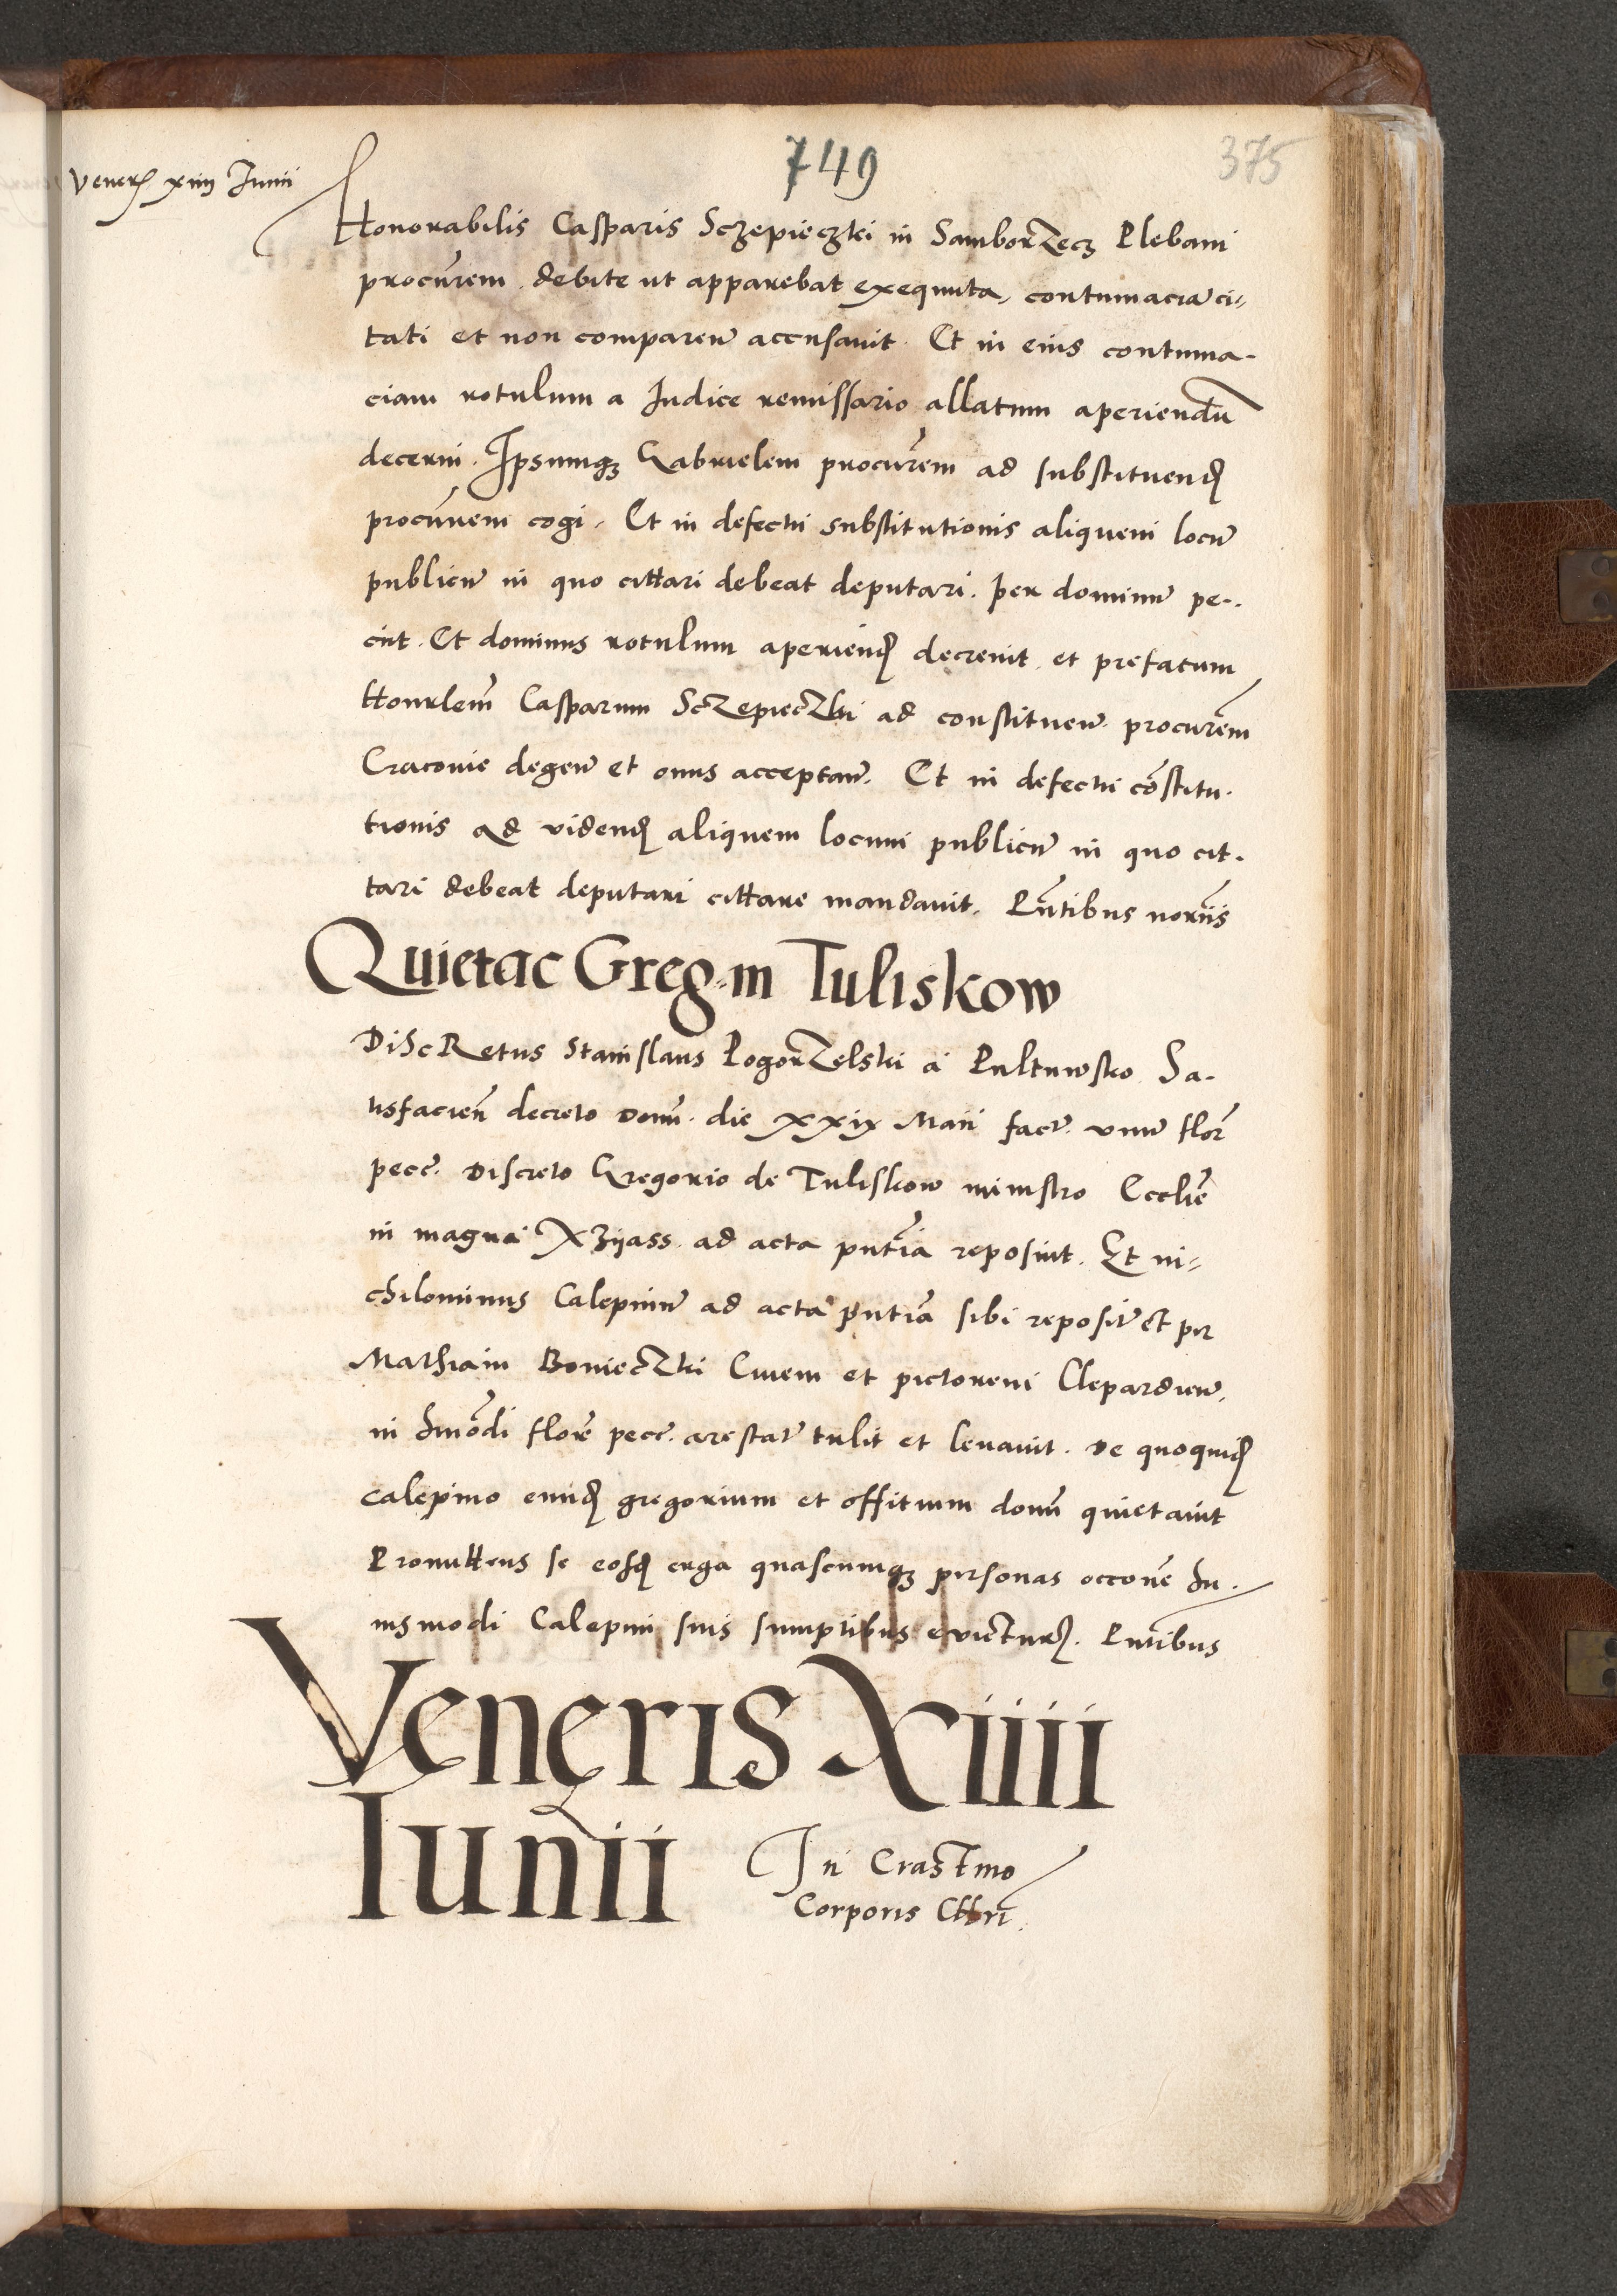 749
375
Veneris xiiii Junii
Honorabilis Casparis Sczepieczki in Samborzecz Plebani
procurem debite ut apparebat exequuta, contumacia ci-
tati et non comparen accusavit. Et in eius contuma-
ciam rotulum a Judice remissario allatum aperiendu
decerni. Ipsumq Gabrielem procurem ad substituend
procurem cogi. Et in defectu substitutionis aliquem locu
publicu in quo cittari debeat deputari. per dominu pe-
ciit. Et dominus rotulum apperiend decrevit. et prefatum
Honrlem Casparum Sczepieczki ad constituen procurem
Cracovie degen et onus acceptan. Et in defectu costitu-
tionis ad vidend aliquem locum publicu in quo cit-
tari debeat deputari cittare mandavit. Pntibus noriis
Quietac Greg. in Tuliskow
Discretus Stanislaus Pogorzelski a Pultuwsko Sa-
tisfacien decreto domi. die xxix Maii fact. unu flor
pecc. Discreto Gregorio de Tuliskow ministro Ecclie
in magna Xzijass. ad acta pntia reposuit. Et ni-
chilominus Calepinu ad acta pntia sibi repositu et per
Mathiam Bonieczki Civem et pictorem Clepardien.
in hmodi flore pecc. arestatu tulit et levavit. de quoquid
calepino eund gregorium et offitium domi quietavit
Promittens se eosd erga quascumq personas occone hu-
iusmodi Calepini suis sumptibus evictur. Pntibus
Veneris Xiiii
Iunii
In Crastino
Corporis Chri.